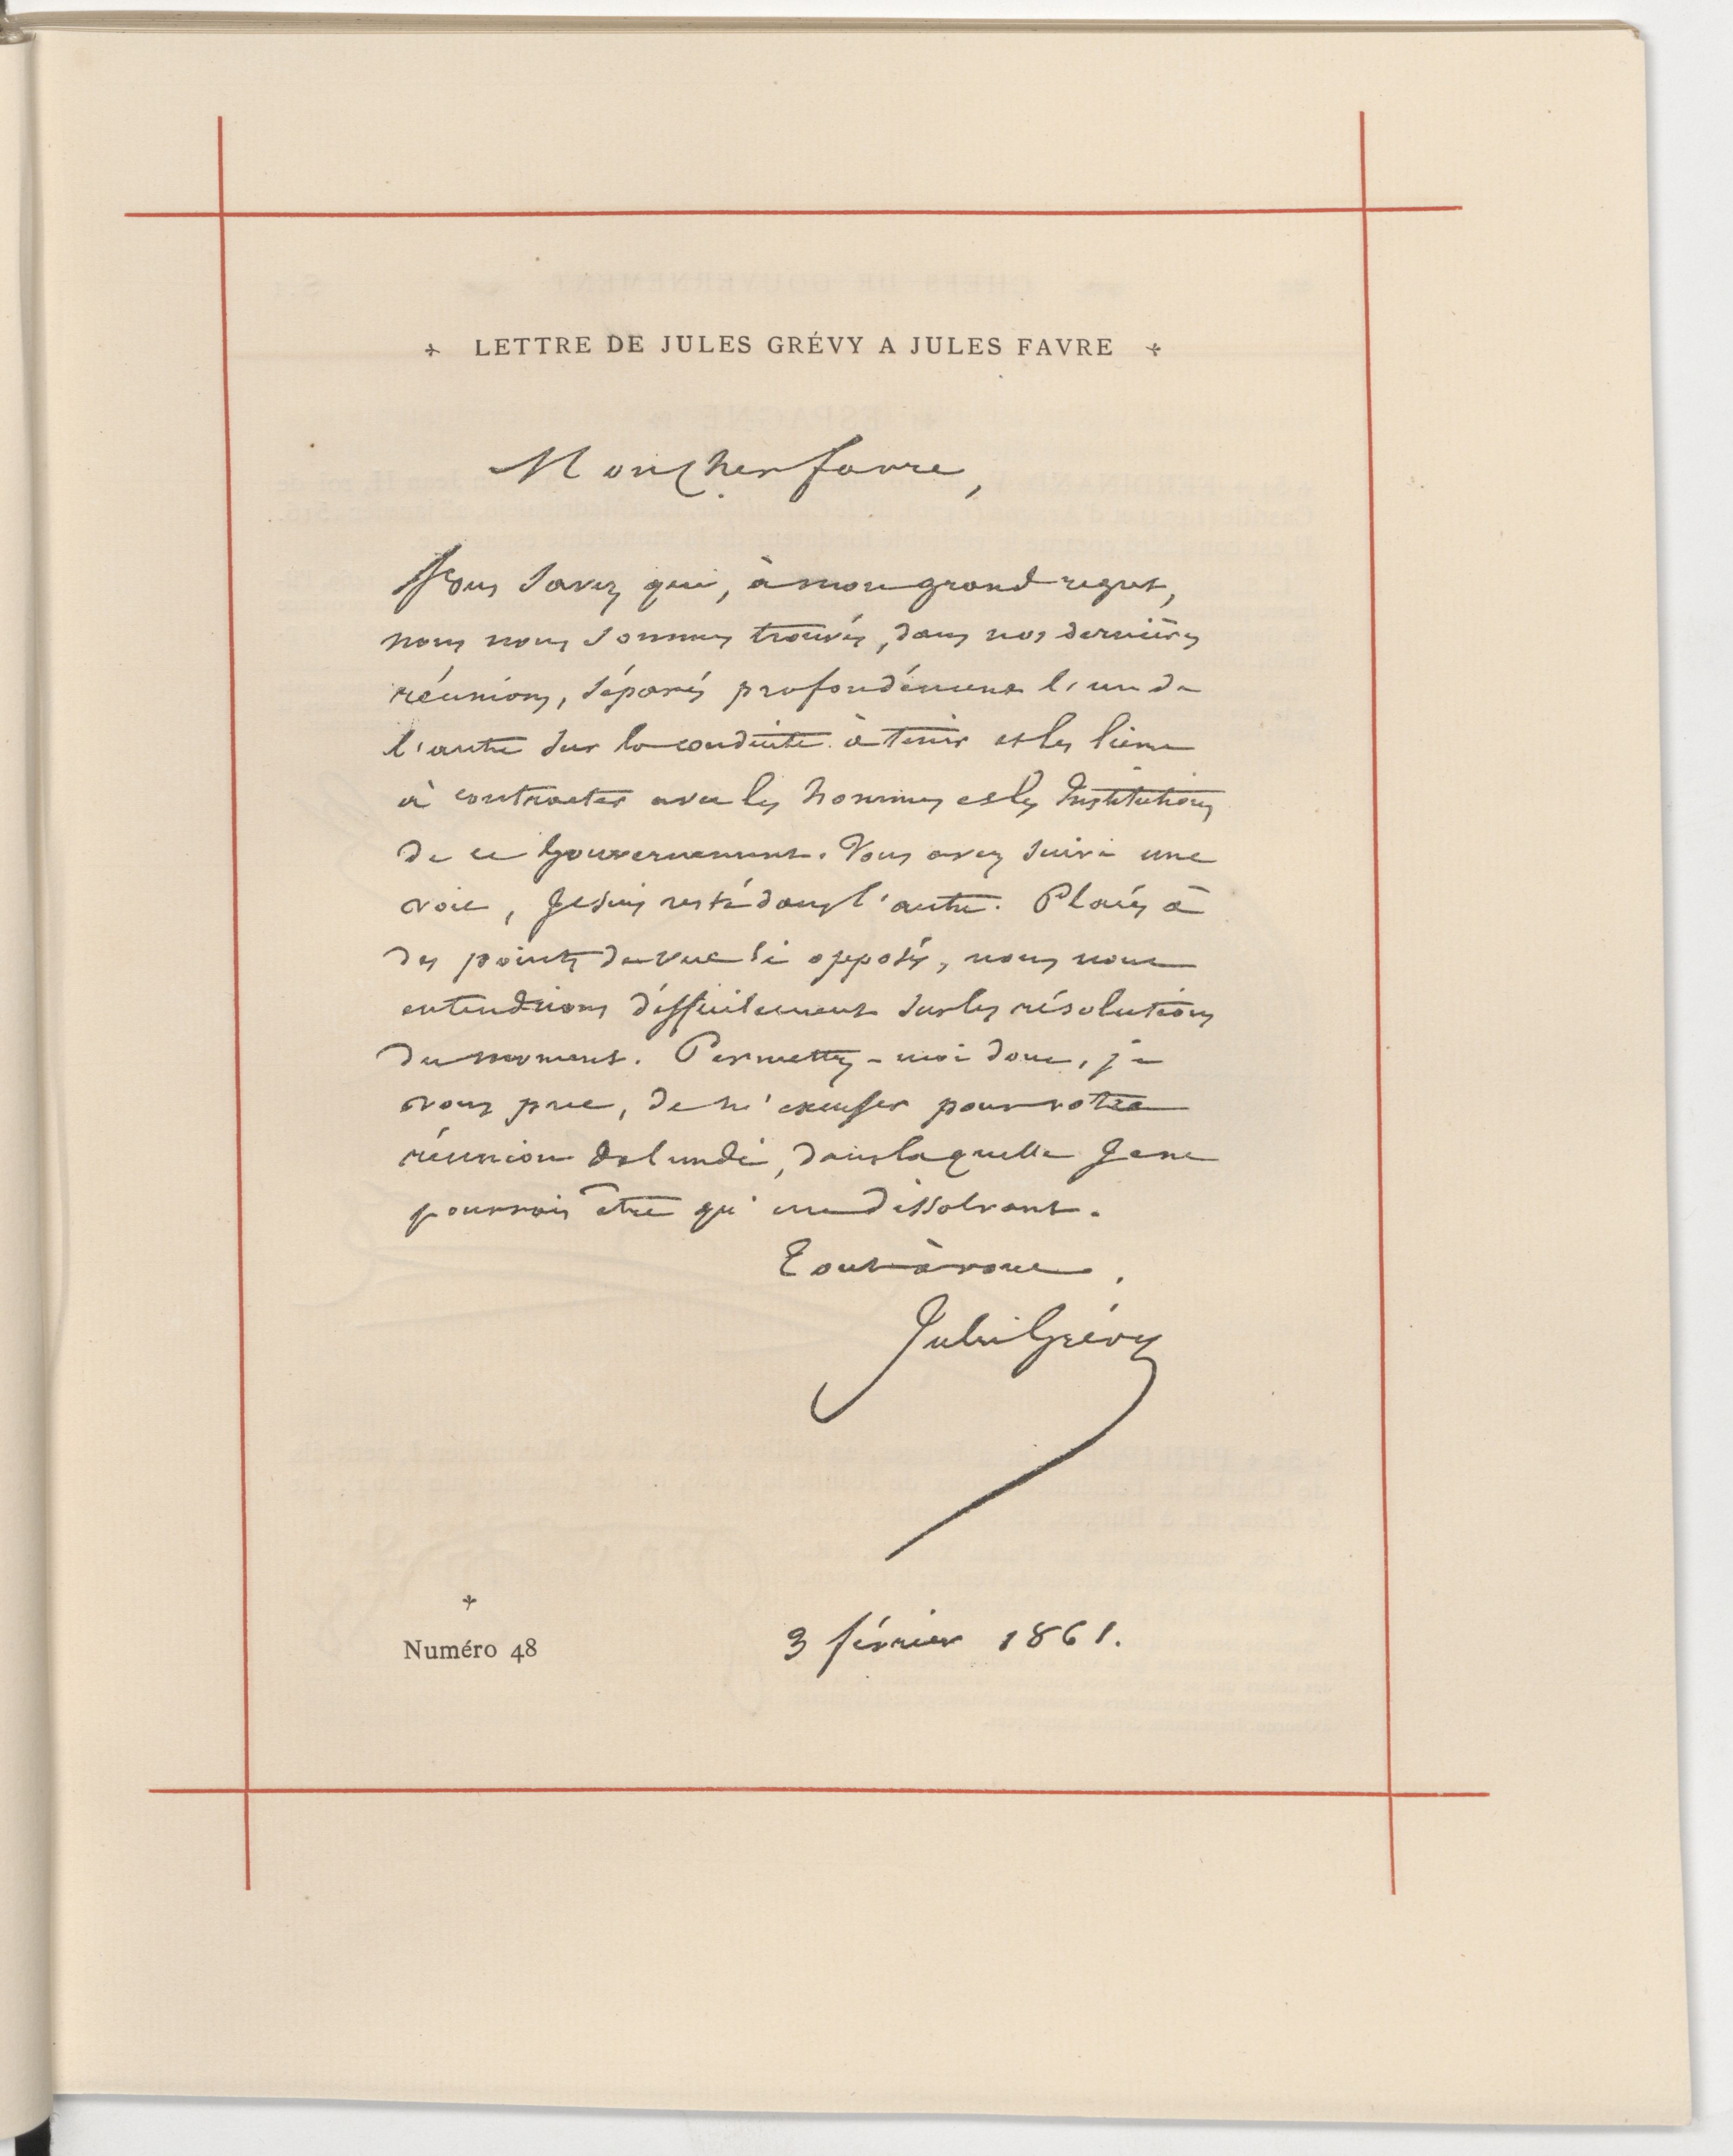 LETTRE DE JULES GRÉVY A JULES FAVRE
Mon cher favre,
Vous savez que, à mon grand regret,
nous nous sommes trouvés, dans nos dernières
réunions, séparés profondément l'un de
l'autre sur la conduite à tenir et les liens
à contracter avec les hommes et les Institutions
de ce Gouvernement. Vous avez suivi une
voie, Je suis resté dans l'autre. Placés à
des points de vue si opposés, nous nous
entendrions difficilement sur les résolutions
du moment. Permettez-moi donc, je
vous prie, de m'excuser pour votre
réunion de lundi, dans laquelle Je ne
pourrais être qu'un dissolvant.
Tout à vous.
Jules Grévy
Numéro 48
3 février 1861.